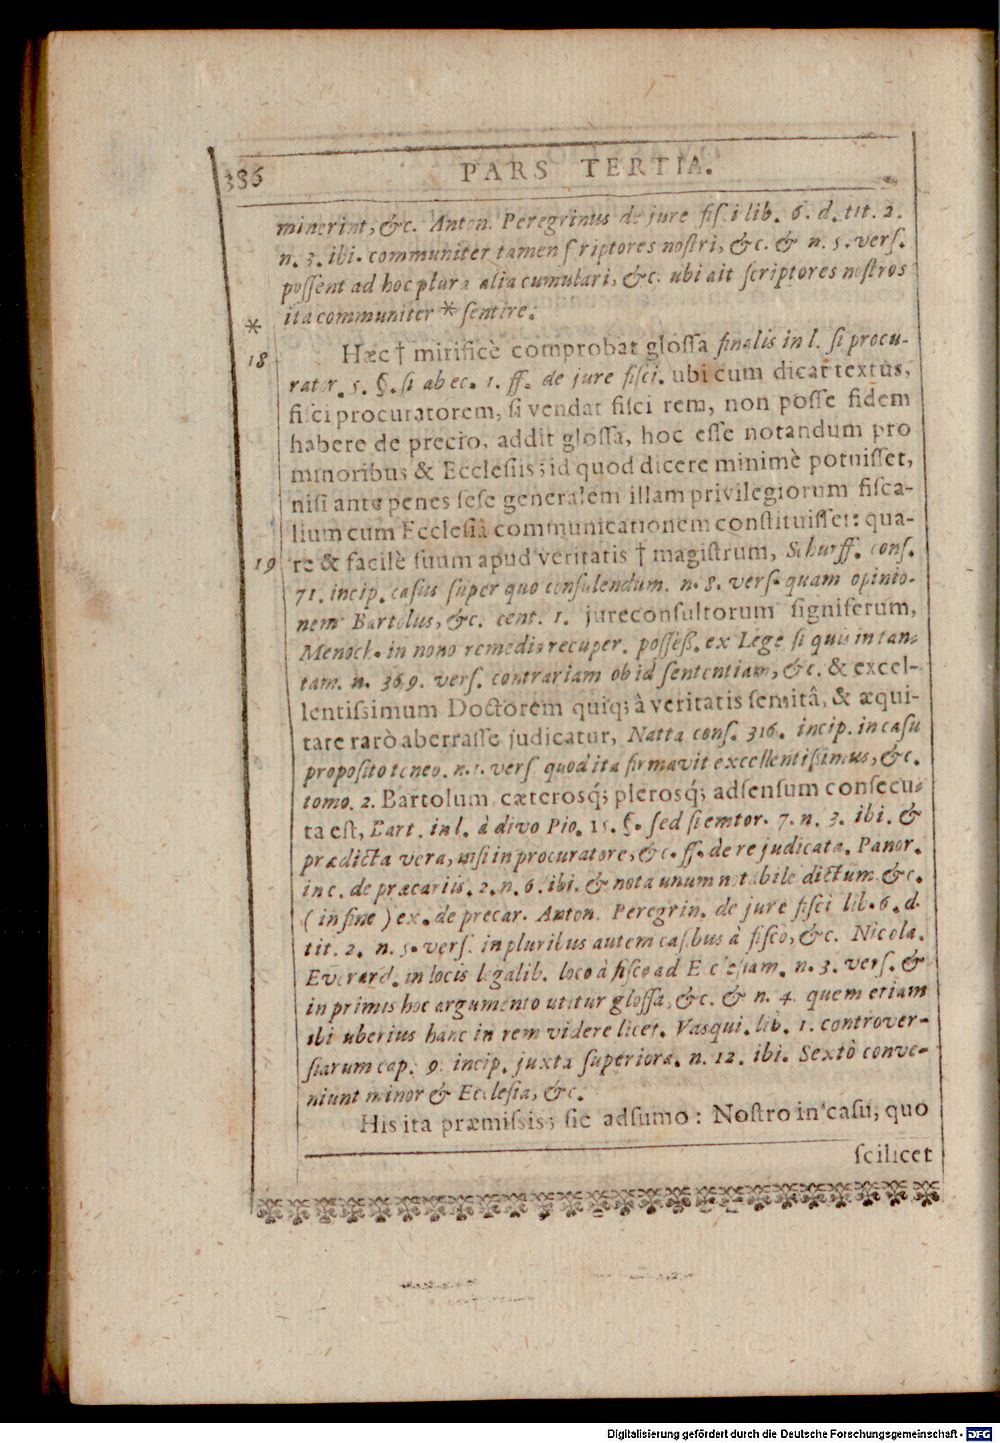 386
PARS TERTIA.
minerint, &c. Anton. Peregrinus de jure fisci lib. 6. d. tit. 2.
n. 3. ibi. communiter tamen scriptores nostri, &c. & n. 5. vers.
possent ad hoc plura alia cumulari, &c. ubi ait scriptores nostros
ita communiter * sentire.
*
18
Hæc † mirificè comprobat glossa finalis in l. si procu-
rator. 5. §. si ab ec. 1. ff. de jure fisci. ubi cum dicat textus,
fisci procuratorem, si vendat fisci rem, non posse fidem
habere de precio, addit glossa, hoc esse notandum pro
minoribus & Ecclesiis; id quod dicere minimè potuisset,
nisi ante penes sese generalem illam privilegiorum fisca-
lium cum Ecclesiâ communicationem constituisset: qua-
19
re & facilè suum apud veritatis † magistrum, Schurff. cons.
71. incip. casus super quo consulendum. n. 8. vers. quam opinio-
nem Bartolus, &c. cent. 1. jureconsultorum signiferum,
Menoch. in nono remedio recuper. possess. ex Lege si quis in tan-
tam. n. 369. vers. contrariam ob id sententiam, &c. & excel-
lentissimum Doctorem quiq; à veritatis semitâ, & æqui-
tate rarò aberrasse judicatur, Natta cons. 316. incip. in casu
proposito teneo. n. 1. vers quod ita firmavit excellentissimus, &c.
tomo. 2. Bartolum cæterosq́; plerosq́; adsensum consecu-
ta est, Bart. in l. à divo Pio. 15. §. sed si emtor. 7. n. 3. ibi. &
prædicta vera, nisi in procuratore, &c. ff. de re judicata. Panor.
in c. de præcariis. 2. n. 6. ibi. & nota unum notabile dictum &c.
(in fine) ex. de precar. Anton. Peregrin. de jure fisci lib. 6. d.
tit. 2. n. 5. vers. in pluribus autem casibus à fisco, &c. Nicola.
Everard. in locis legalib. loco à fisco ad Ecclesiam. n. 3. vers. &
in primis hoc argumento utitur glossa, &c. & n. 4. quem etiam
ibi uberius hanc in rem videre licet. Vasqui. lib. 1. controver-
siarum cap. 9. incip. juxta superiora. n. 12. ibi. Sextò conve-
niunt minor & Ecclesia, &c.
His ita præmissis; sic adsumo: Nostro in casu, quo
scilicet
Digitalisierung gefördert durch die Deutsche Forschungsgemeinschaft - DFG